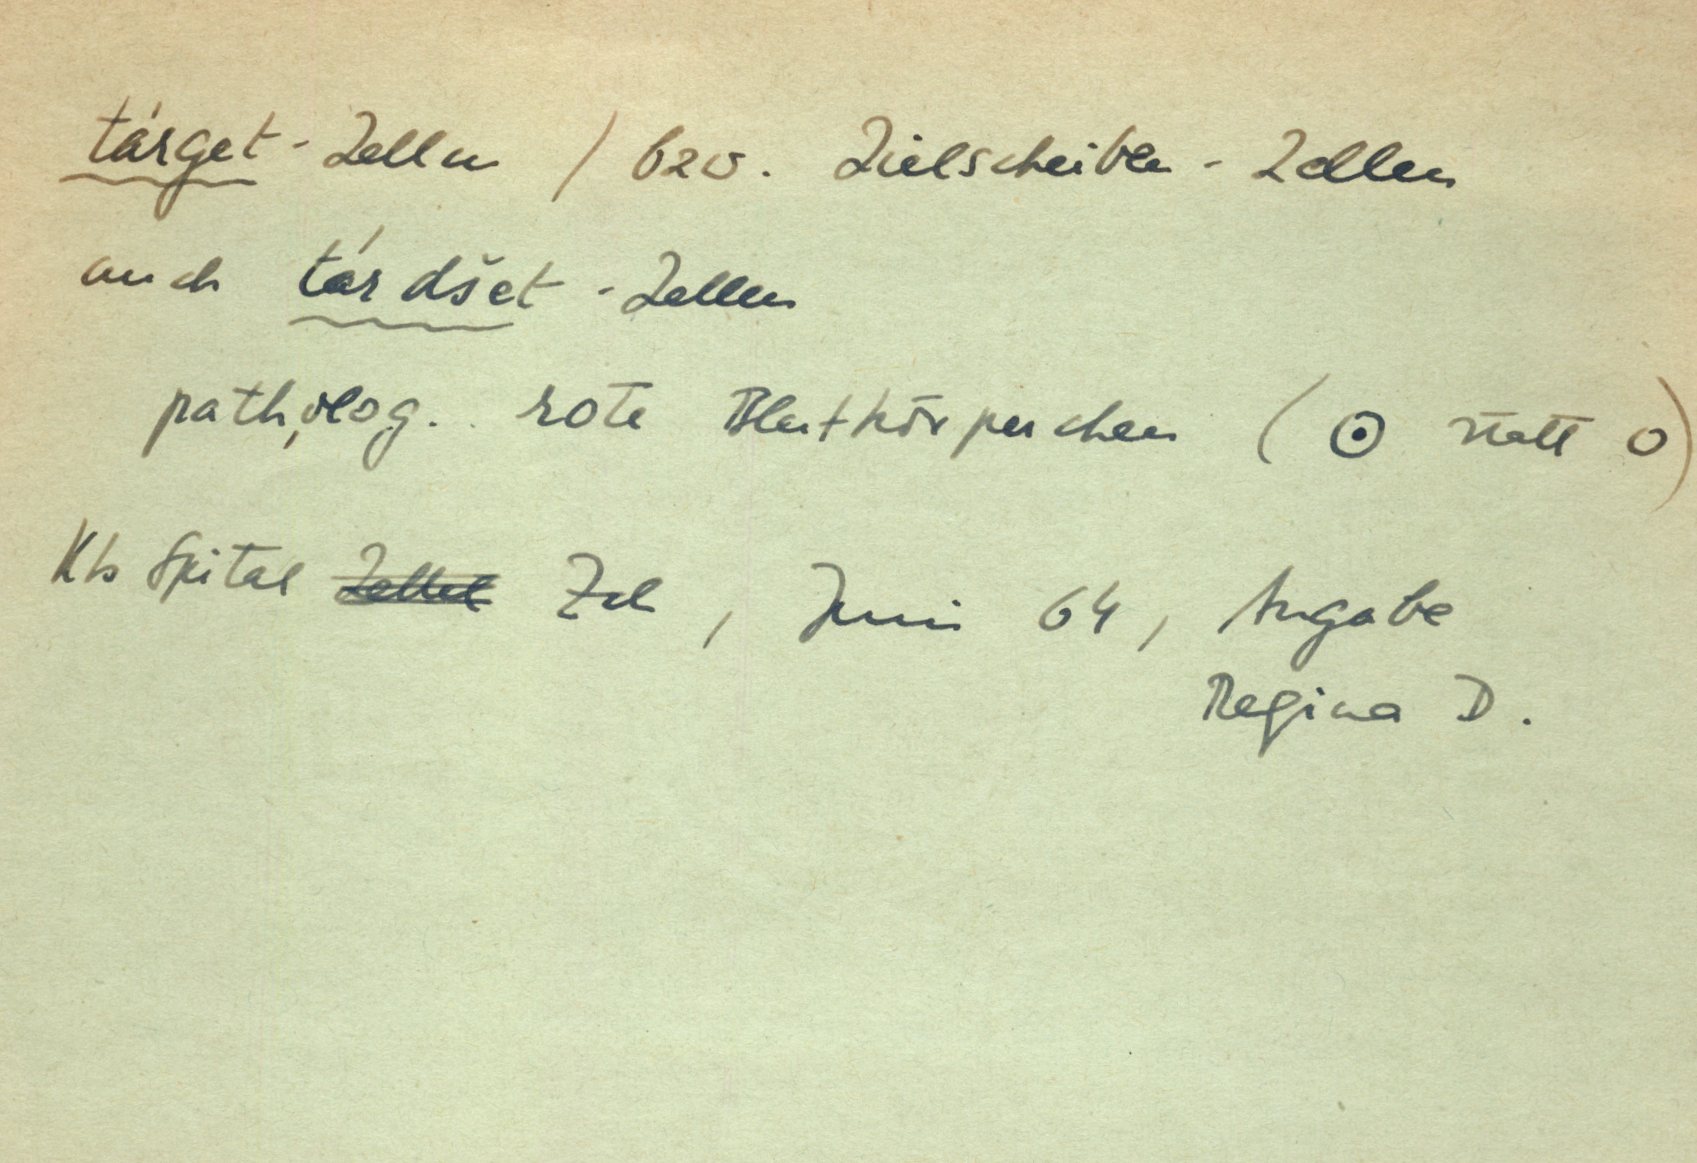 tárget-Zellen / bzw. Zielscheiben-Zellen
auch tárdšet-Zellen
patholog. rote Blutkörperchen (⊙ statt o)
Kts Spital Zch, Juni 64, Angabe
Regina D.